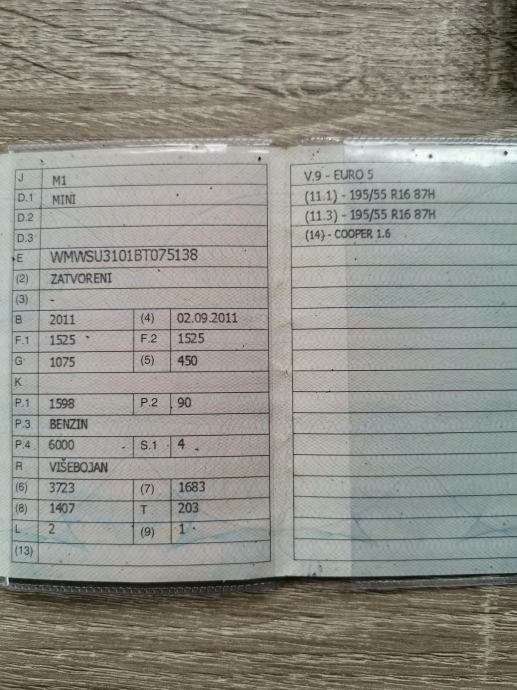 J M1
D.1 MINI
D.2
D.3
E WMWSU3101BT075138
(2) ZATVORENI
(3) -
B 2011 (4) 02.09.2011
F.1 1525 F.2 1525
G 1075 (5) 450
K
P.1 1598 P.2 90
P.3 BENZIN
P.4 6000 S.1 4
R VIŠEBOJAN
(6) 3723 (7) 1683
(8) 1407 T 203
L 2 (9) 1
(13)
V.9 - EURO 5
(11.1) - 195/55 R16 87H
(11.3) - 195/55 R16 87H
(14) - COOPER 1.6